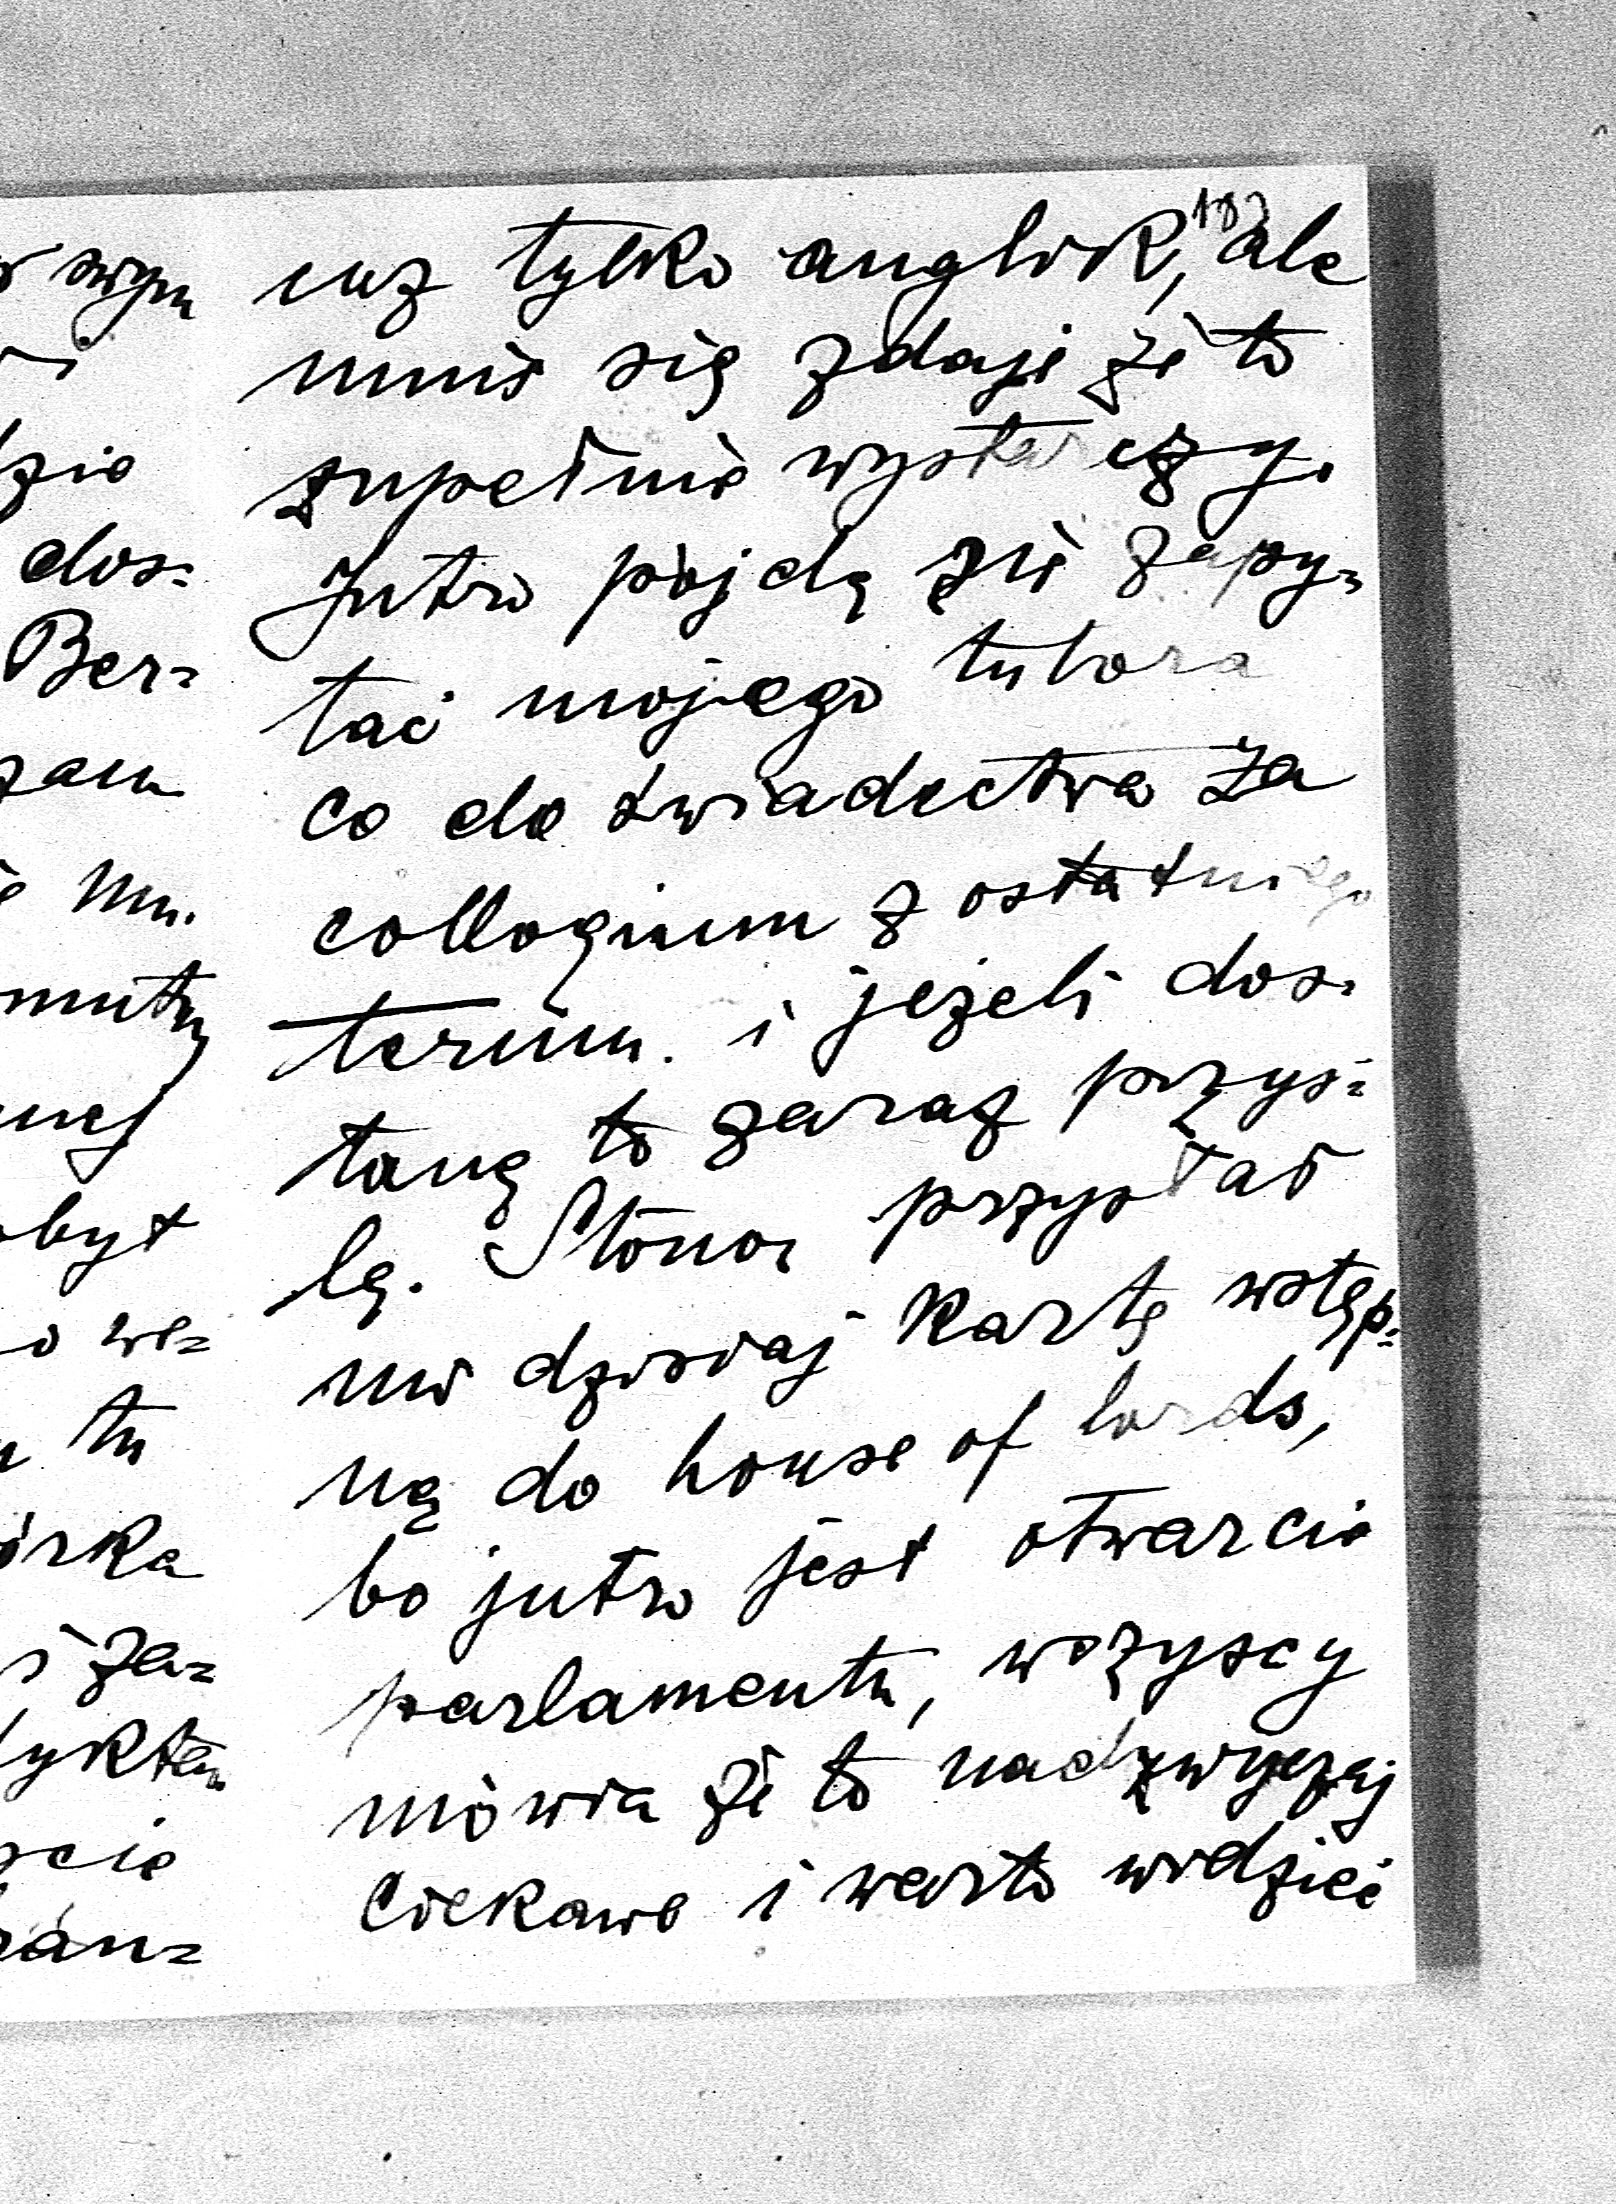 183
swym
dzie
dos-
Ber-
obyt
tu
i za-
usz tylko anglik, ale
mnie się zdaje że to
zupełnie wystarczy.
Jutro pójdę się zapy-
tać mojego tutora
co do świadectwa za
collogium z ostatniego
termin. i jeżeli dos-
tanę to zaraz przyś-
lę. Stonor przysłał
mi dzisiaj kartę wstęp-
ną do house of lords,
bo jutro jest otwarcie
parlamentu, wszyscy
mówia że to nadzwyczaj
ciekawe i warto widzieć